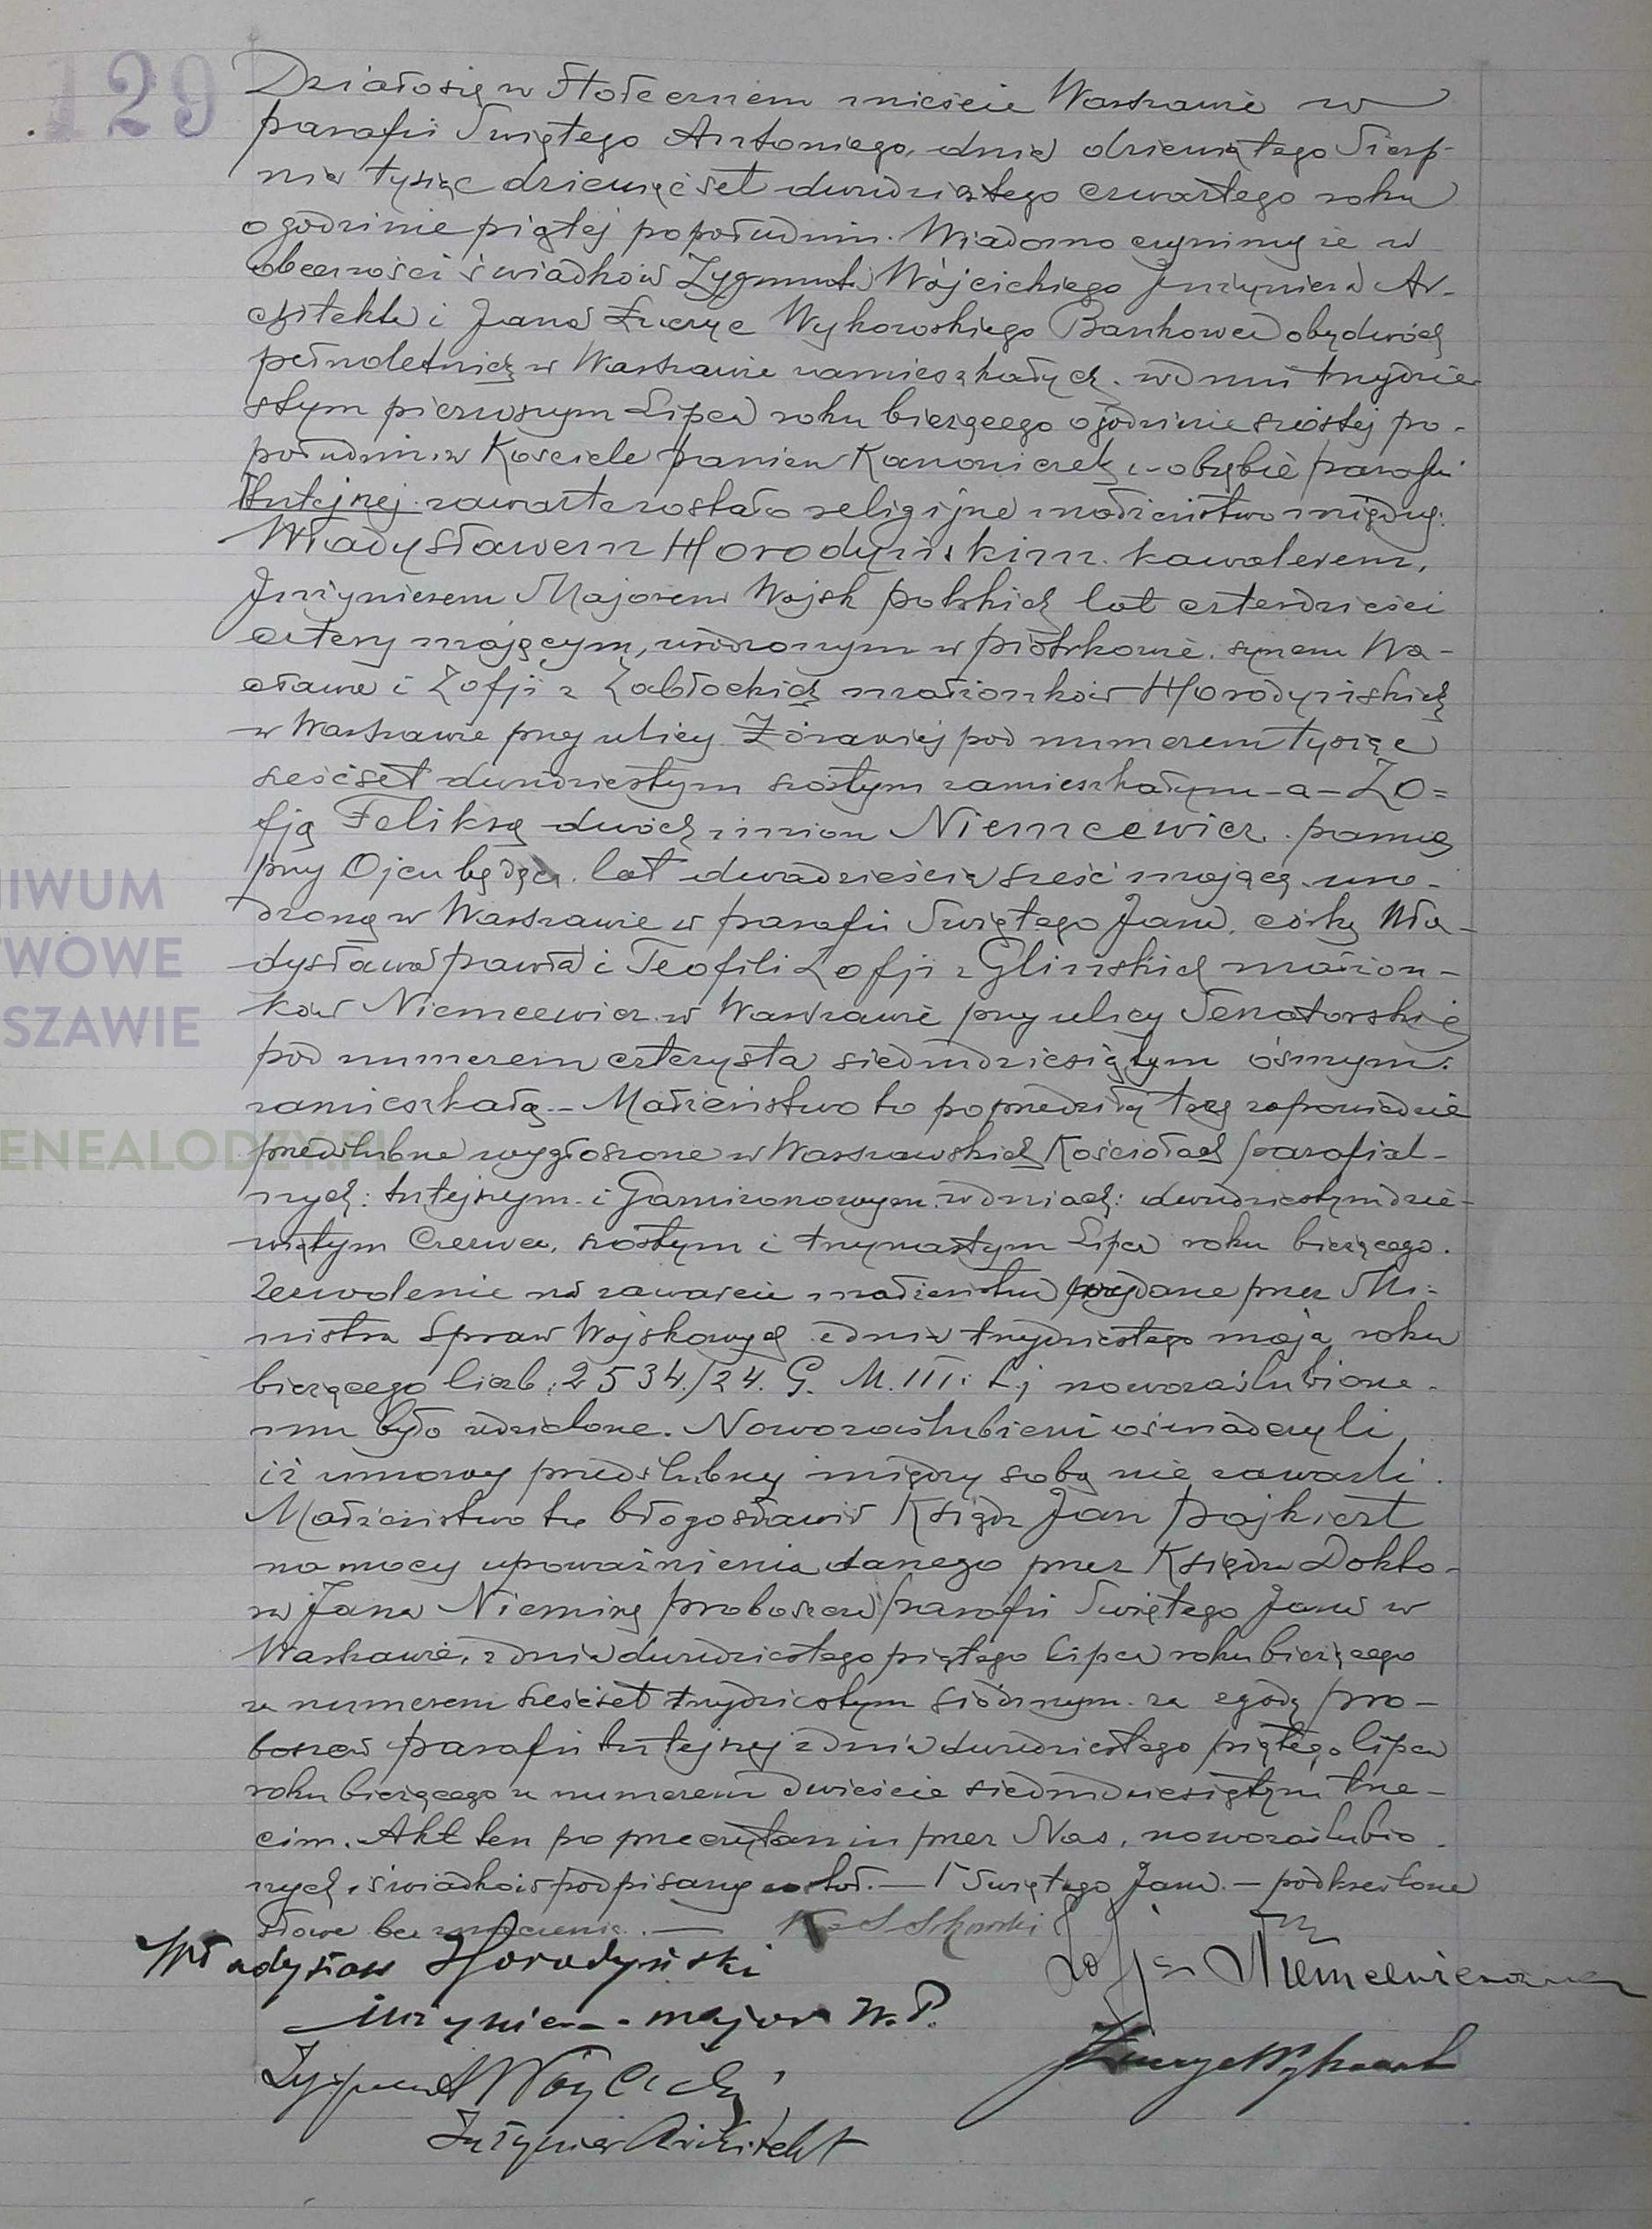 129
Działo się w Stołecznem mieście Warszawie w
parafii Świętego Antoniego, dnia dziewiątego Sierp-
nia tysiąc dziewięćset dwudziestego czwartego roku
o godzinie piątej popołudniu. Wiadomo czynimy że w
obecności świadków Zygmunta Wójcickiego Inżyniera Ar-
chitekta i Jana Łuczyc Wykowskiego Bankowca obydwóch
pełnoletnich w Warszawie zamieszkałych. w dniu trzydzie-
stym pierwszym Lipca roku bieżącego o godzinie szóstej po-
południu. w Kościele panien Kanoniczek w obrębie parafii
tutejszej zawarte zostało religijne małżeństwo między:
Władysławem Horodyńskim. kawalerem,
Inżynierem Majorem Wojsk polskich lat czterdzieści
cztery mającym, urodzonym w piotrkowie. synem Wa-
cława i Zofji z Zabłockich małżonków Horodyńskich
w Warszawie przy ulicy Żórawiej pod numerem tysiąc
sześćset dwudziestym szóstym zamieszkałym - a - Zo=
fją Feliksą dwóch imion Niemcewicz. panną
przy Ojcu będącą. lat dwadzieścia sześć mającą. uro-
dzoną w Warszawie w parafii Świętego Jana, córką Wła-
dysława pawła i Teofili Zofji z Glińskich małżon-
ków Niemcewicz. w Warszawie przy ulicy Senatorskiej
pod numerem czterysta siedmdziesiątym ósmym.
zamieszkałą. - Małżeństwo to poprzedziły trzy zapowiedzie
przedślubne wygłoszone w Warszawskich Kościołach parafial-
nych: tutejszym i Garnizonowym. w dniach: dwudziestym dzie-
wiątym Czerwca, szóstym i trzynastym Lipca roku bieżącego.
Zezwolenie na zawarcie małżeństwa wydane przez Mi-
nistra Spraw Wojskowych z dnia trzydziestego maja roku
bieżącego liczb: 2534./24. G. M. III: L; nowozaślubione-
mu było udzielone. Nowozaślubieni oświadczyli,
iż umowy przedślubnej między sobą nie zawarli.
Małżeństwo to błogosławił Ksiądz Jan Pajkiert
na mocy upoważnienia danego przez Księdza Dokto-
ra Jana Niemirę proboszcza parafii Świętego Jana w
Warszawie, z dnia dwudziestego piątego lipca roku bieżącego
za numerem sześćset trzydziestym siódmym. za zgodą pro-
boszcza parafii tutejszej z dnia dwudziestego piątego lipca
roku bieżącego za numerem dwieście siedmdziesiątym trze-
cim. Akt ten po przeczytaniu przez Nas, nowozaślubio-
nych, świadków podpisany został. — Świętego Jana. — podkreślone
słowa bez znaczenia. —
Władysław Horodyński
Zofja Niemcewiczówna
inżynier - major W. P.
Łuczyc Wykowski
Zygmunt Wóycicki
Inżynier Architekt
HIWUM
WOWE
SZAWIE
ENEALODZY.PL